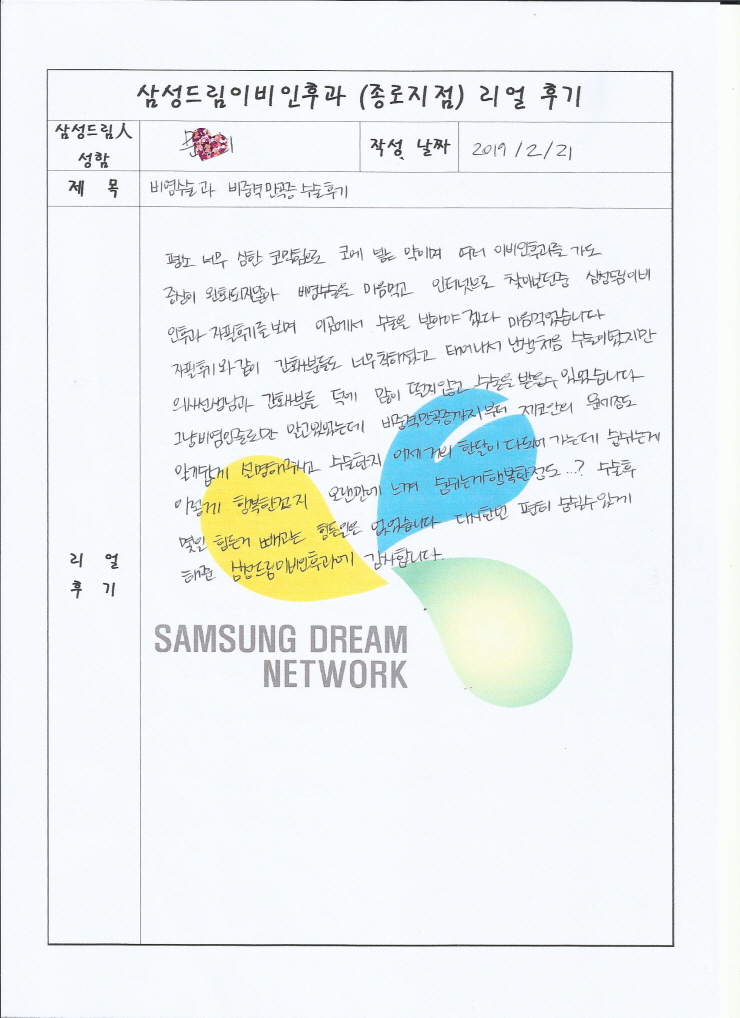 삼성드림이비인후과 (종로지점) 리얼 후기
삼성드림人
성함
작성 날짜
2019/2/21
제 목
비염수술과 비중격만곡증 수술후기
평소 너무 심한 코막힘으로 코에 뿌는 약이며 여러 이비인후과를 가도
증상이 완화되지않아 비염수술을 마음먹고 인터넷으로 찾아보던중 삼성드림이비
인후과 자필후기를 보며 이곳에서 수술을 받아야 겠다 마음먹었습니다
자필후기와 같이 간호사분들도 너무착하셨고 태어나서 난생처음 수술이였지만
의사선생님과 간호사분들 덕에 많이 떨지않고 수술을 받을수 있었습니다
그냥비염인줄로만 알고있었는데 비중격만곡증까지부터 제코안의 문제점도
알기쉽게 설명해주시고 수술한지 이제거의 한달이 다되어 가는데 숨쉬는게
이렇게 행복한건지 오랜만에 느껴 숨쉬는게행복한정도...? 수술후
몇일 힘든거 빼고는 힘든일은 없었습니다 다시한번 편히 숨쉴수있게
해준 삼성드림이비인후과에 감사합니다.
리 얼
후 기
SAMSUNG DREAM
NETWORK